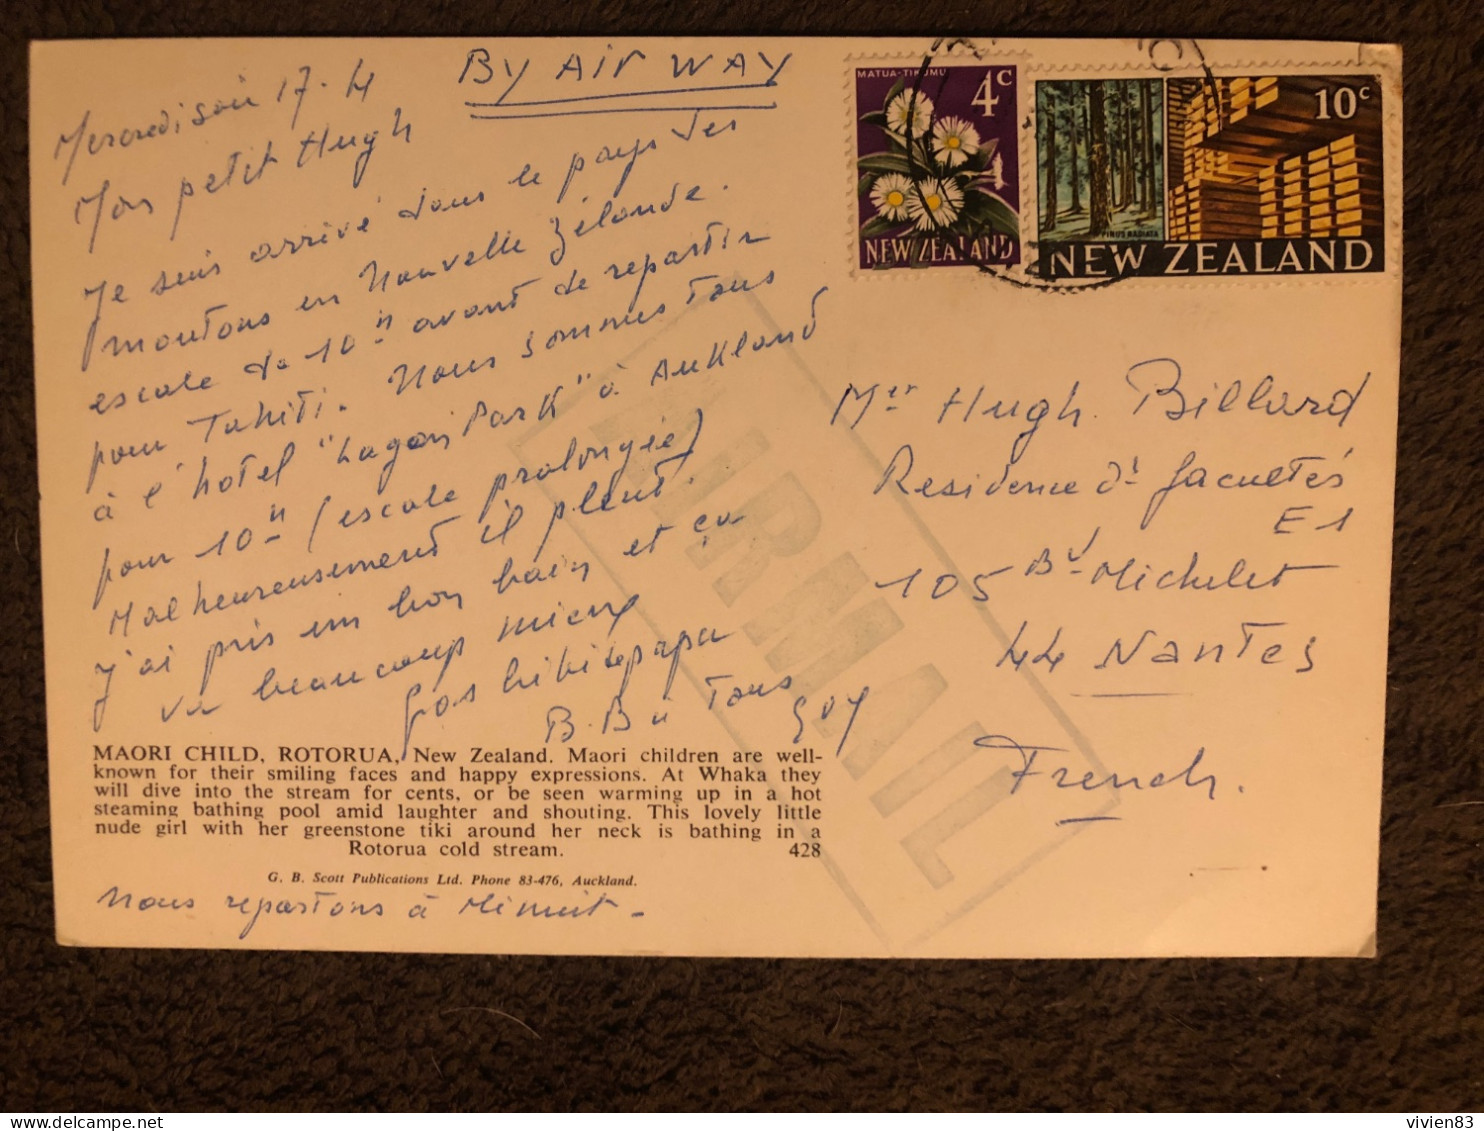 Mercredi soir 17.4
BY AIR WAY
Mon petit Hugh
Je suis arrivé dans le pays des
moutons en Nouvelle Zélande.
escale de 10 H avant de repartir
pour Tahiti. Nous sommes tous
à l'hotel "Lagon Park" à Aukland
pour 10 H (escale prolongée)
Malheureusement il pleut.
j'ai pris un bon bain et ça
va beaucoup mieux
Gros bibi de papa
B. B à Tous
Guy
MAORI CHILD, ROTORUA, New Zealand. Maori children are well-
known for their smiling faces and happy expressions. At Whaka they
will dive into the stream for cents, or be seen warming up in a hot
steaming bathing pool amid laughter and shouting. This lovely little
nude girl with her greenstone tiki around her neck is bathing in a
Rotorua cold stream. 428
G. B. Scott Publications Ltd. Phone 83-476, Auckland.
Nous repartons à Minuit -
MATUA-TIKUMU
4c
NEW ZEALAND
10c
PINUS RADIATA
NEW ZEALAND
AIRMAIL
Mer Hugh. Billard
Residence
E1
105 Bd Michelet
44 Nantes
French.
vivien83